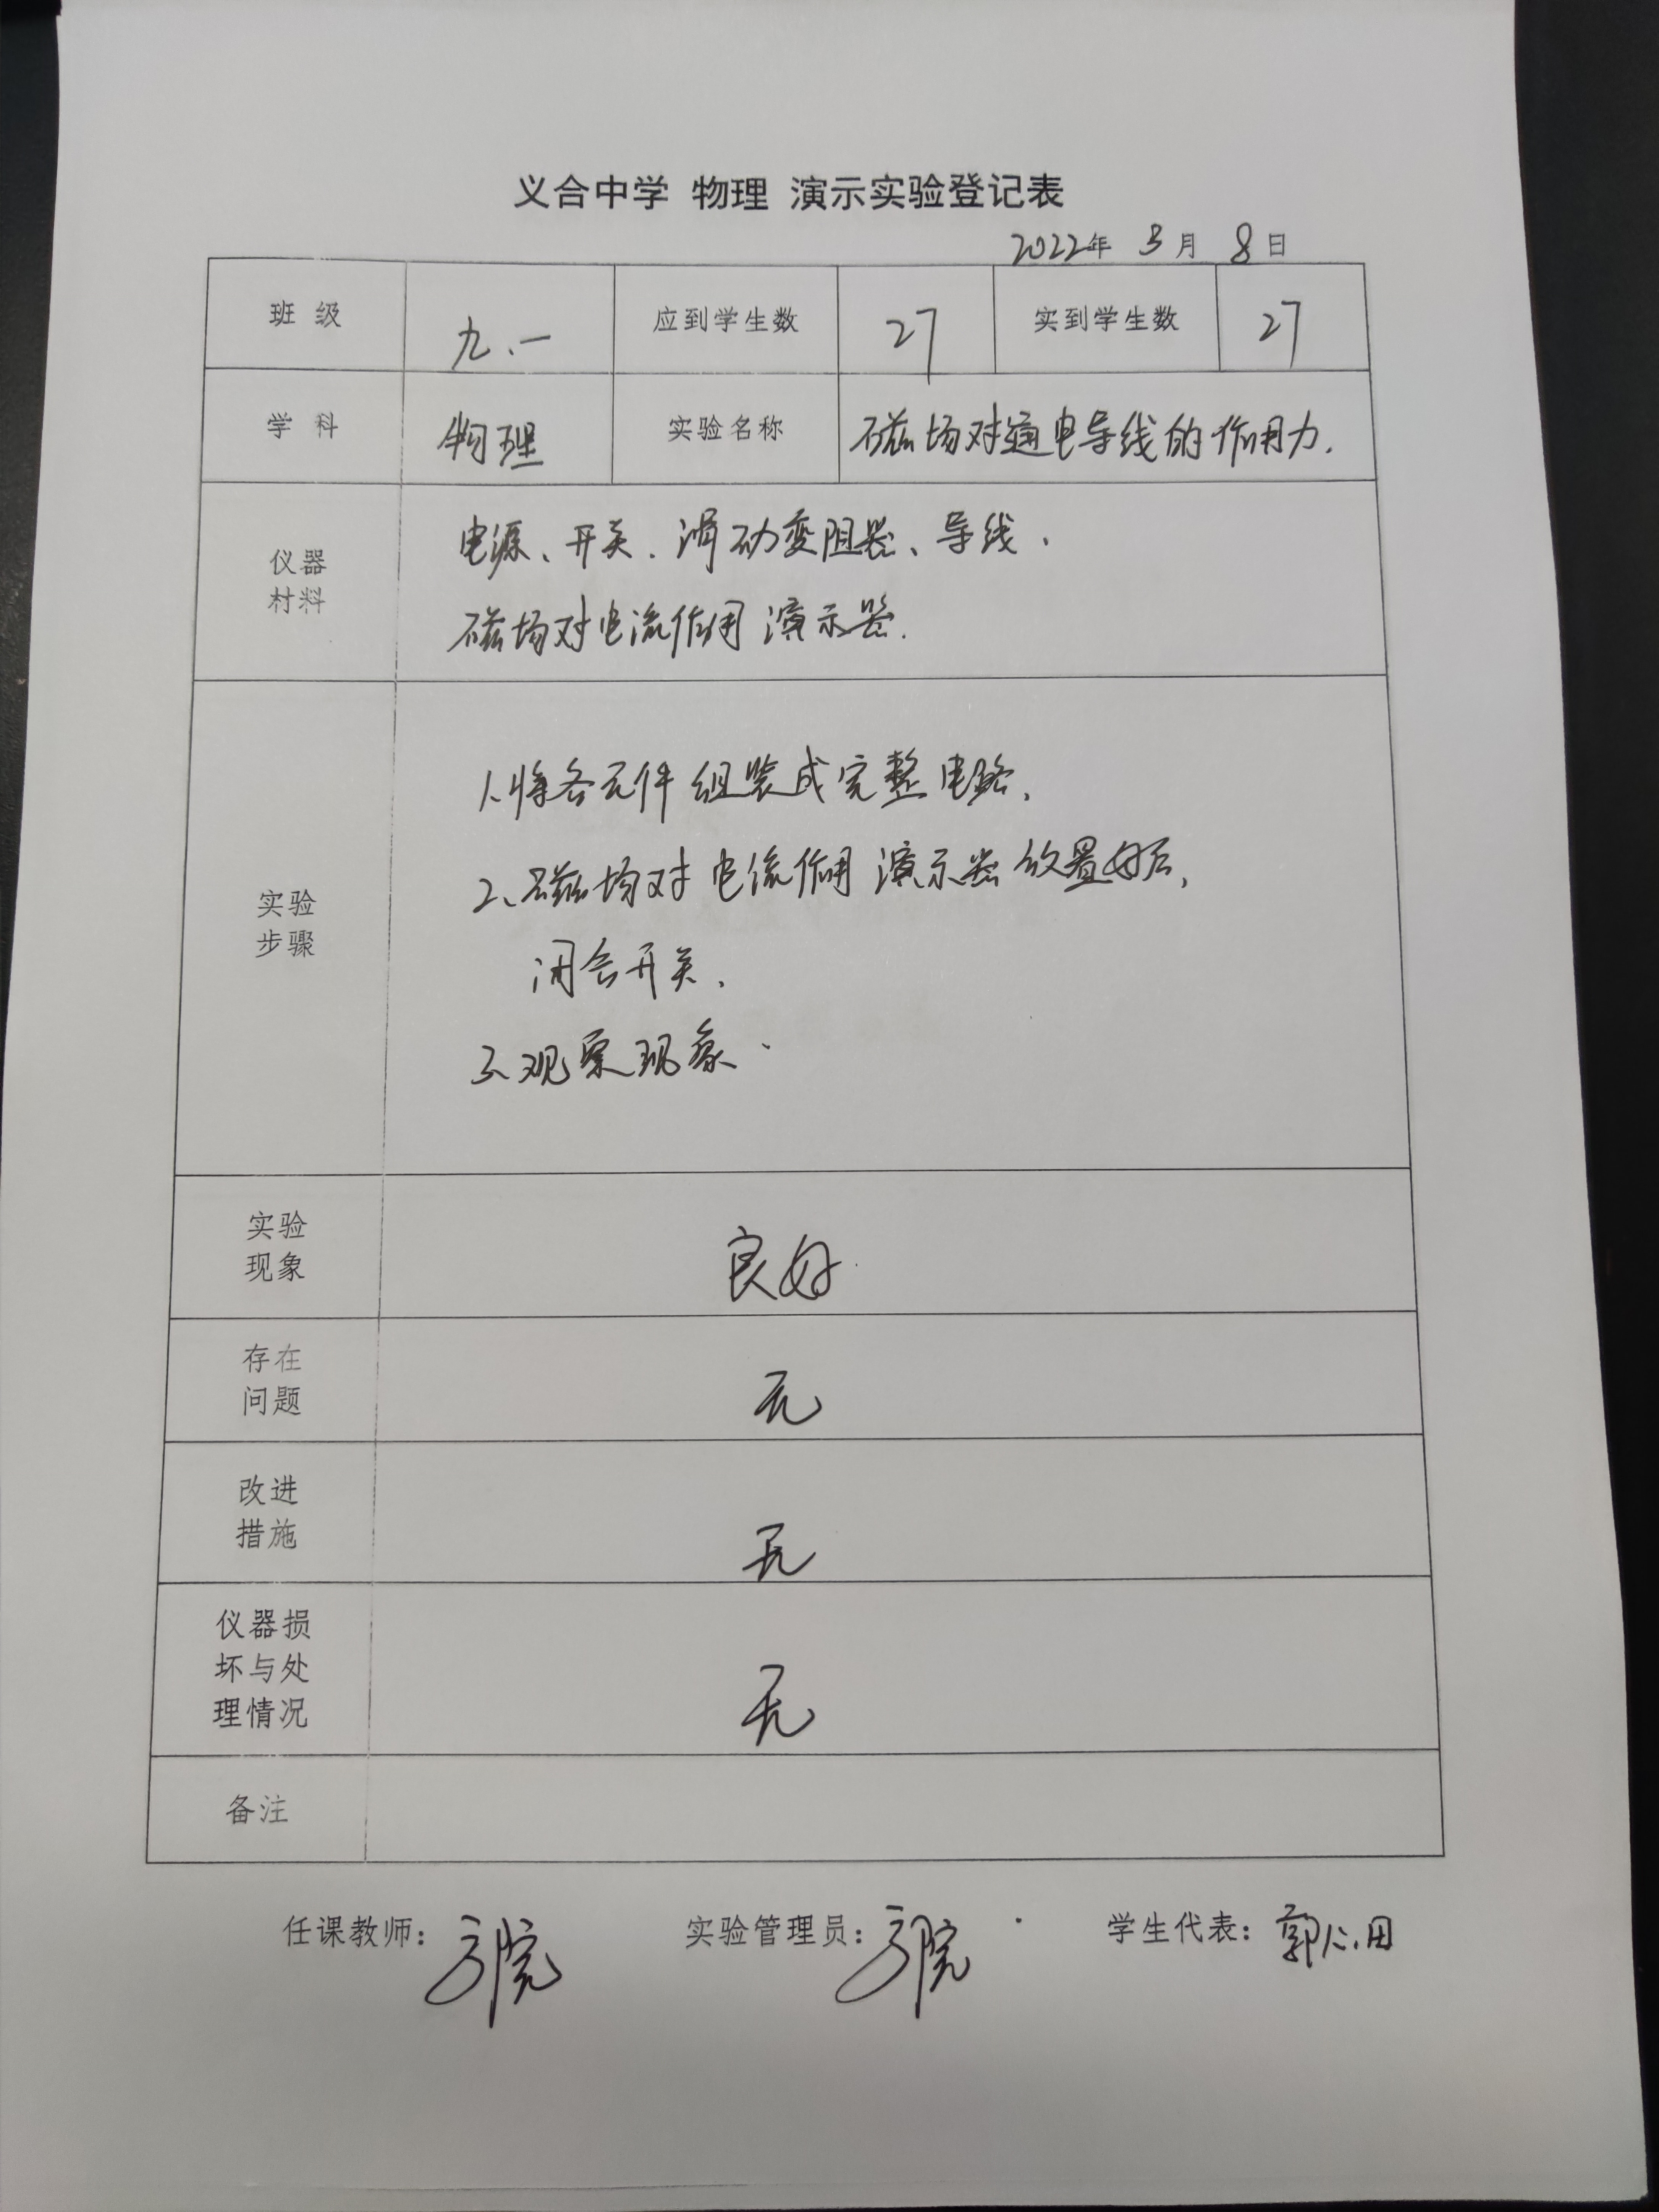 义合中学 物理 演示实验登记表
2022年 3月 8日
班级 九.一 应到学生数 27 实到学生数 27
学科 物理 实验名称 磁场对通电导线的作用力.
仪器
材料
电源、开关、滑动变阻器、导线、
磁场对电流作用演示器.
实验
步骤
1.将各元件组装成完整电路.
2、磁场对电流作用演示器放置好后,
闭合开关.
3.观察现象.
实验
现象
良好.
存在
问题
无
改进
措施
无
仪器损
坏与处
理情况
无
备注
任课教师: 实验管理员: 学生代表: